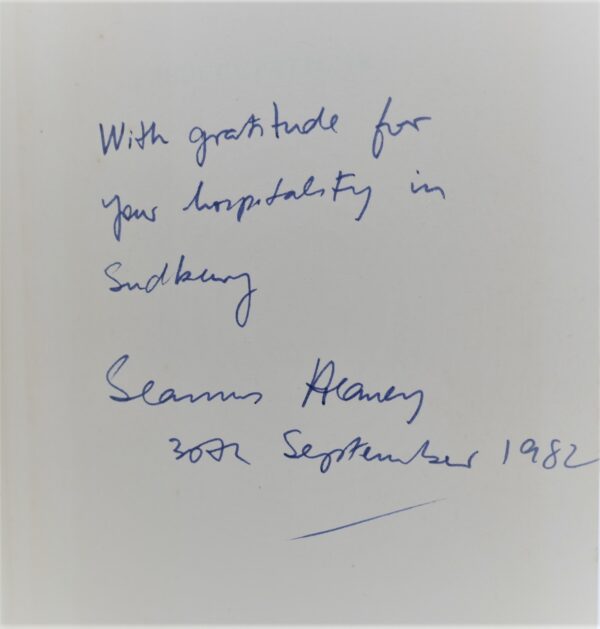 With gratitude for
your hospitality in
Sudbury
Seamus Heaney
30th September 1982